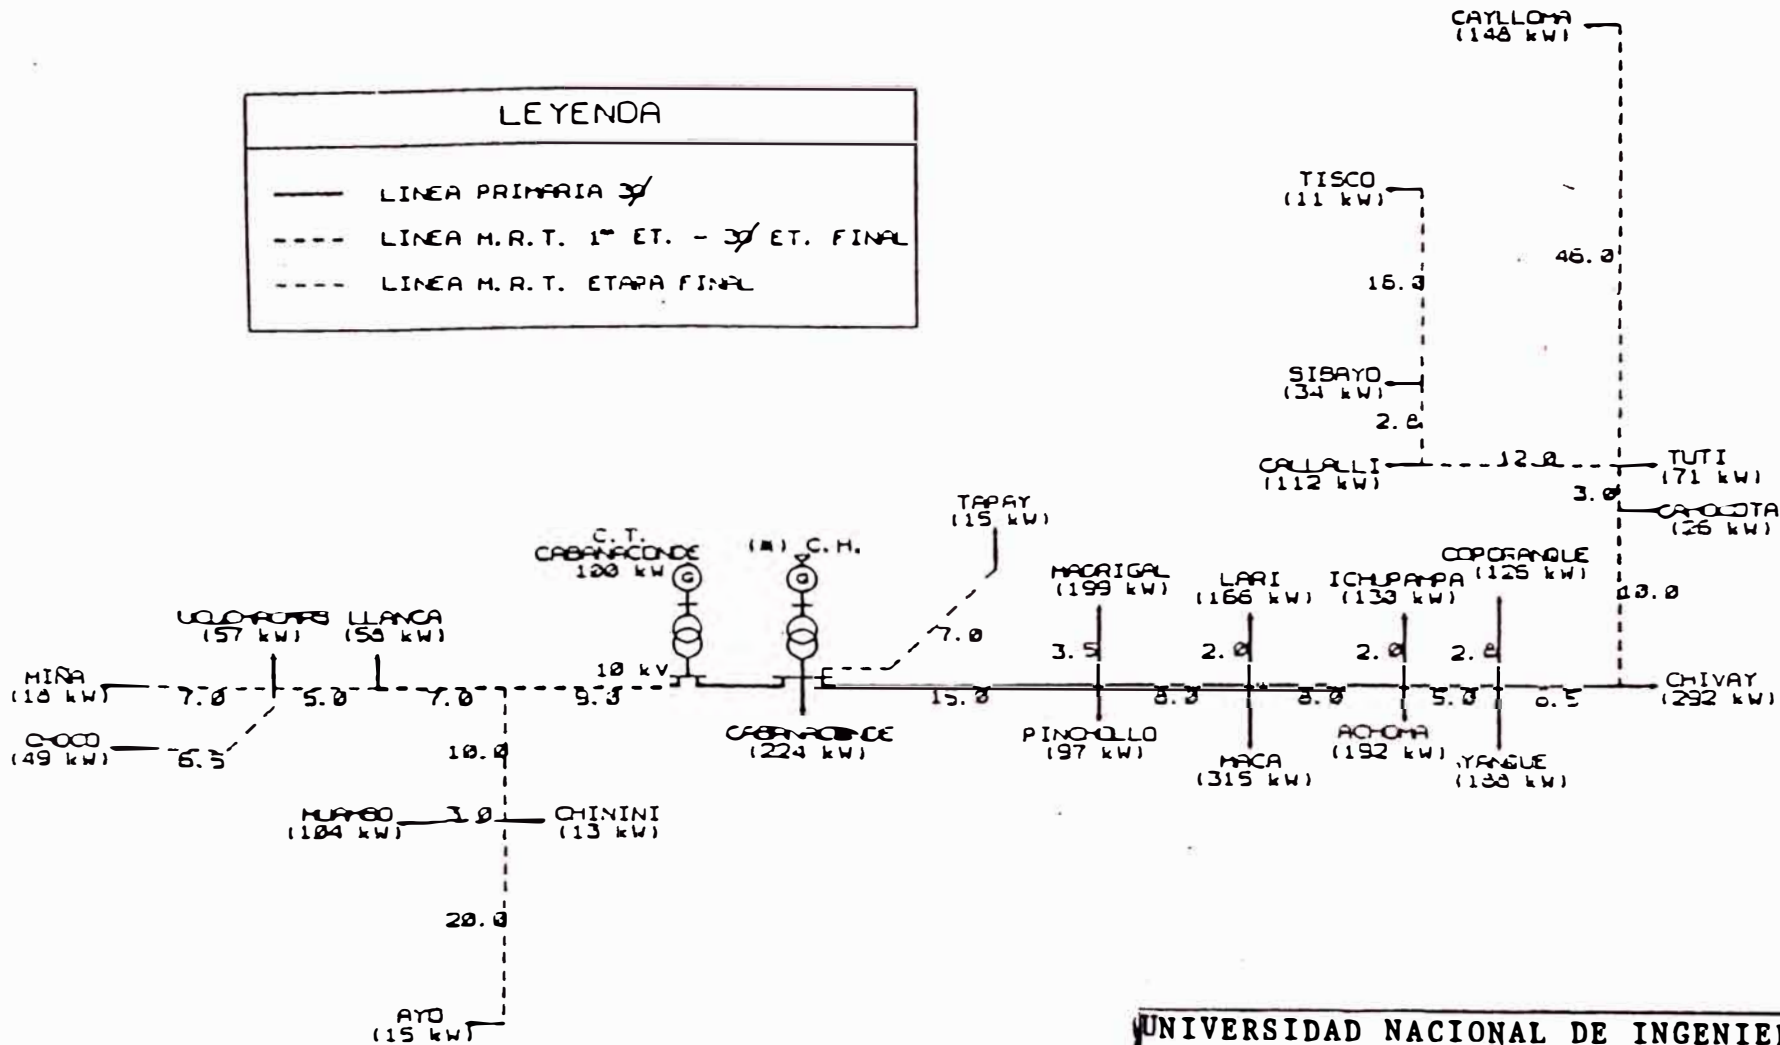 CAYLLOMA
(148 kW)
LEYENDA
LINEA PRIMARIA 3Ø
LINEA M.R.T. 1ª ET. - 3Ø ET. FINAL
LINEA M.R.T. ETAPA FINAL
TISCO
(11 kW)
46.0
SIBAYO
(34 kW)
2.8
CALLALLI
(112 kW)
12.0
TUTI
(71 kW)
3.0
(26 kW)
TAPAY
(15 kW)
C.T.
CABANACONDE
100 kW
C.H.
MADRIGAL
(199 kW)
LARI
(166 kW)
ICHUPAMPA
COPORAQUE
10.0
LLANCA
(57 kW)
7.0
3.5
2.0
2.0
2.8
10 kV
MIÑA
(18 kW)
7.0
5.0
7.0
9.0
15.0
8.0
8.0
5.0
CHIVAY
(292 kW)
CHOCO
(49 kW)
6.5
10.0
CABANACONDE
(224 kW)
PINCHOLLO
(97 kW)
MACA
(315 kW)
ACHOMA
(192 kW)
YANQUE
HUAMBO
(104 kW)
3.0
CHININI
(13 kW)
20.0
AYO
(15 kW)
UNIVERSIDAD NACIONAL DE